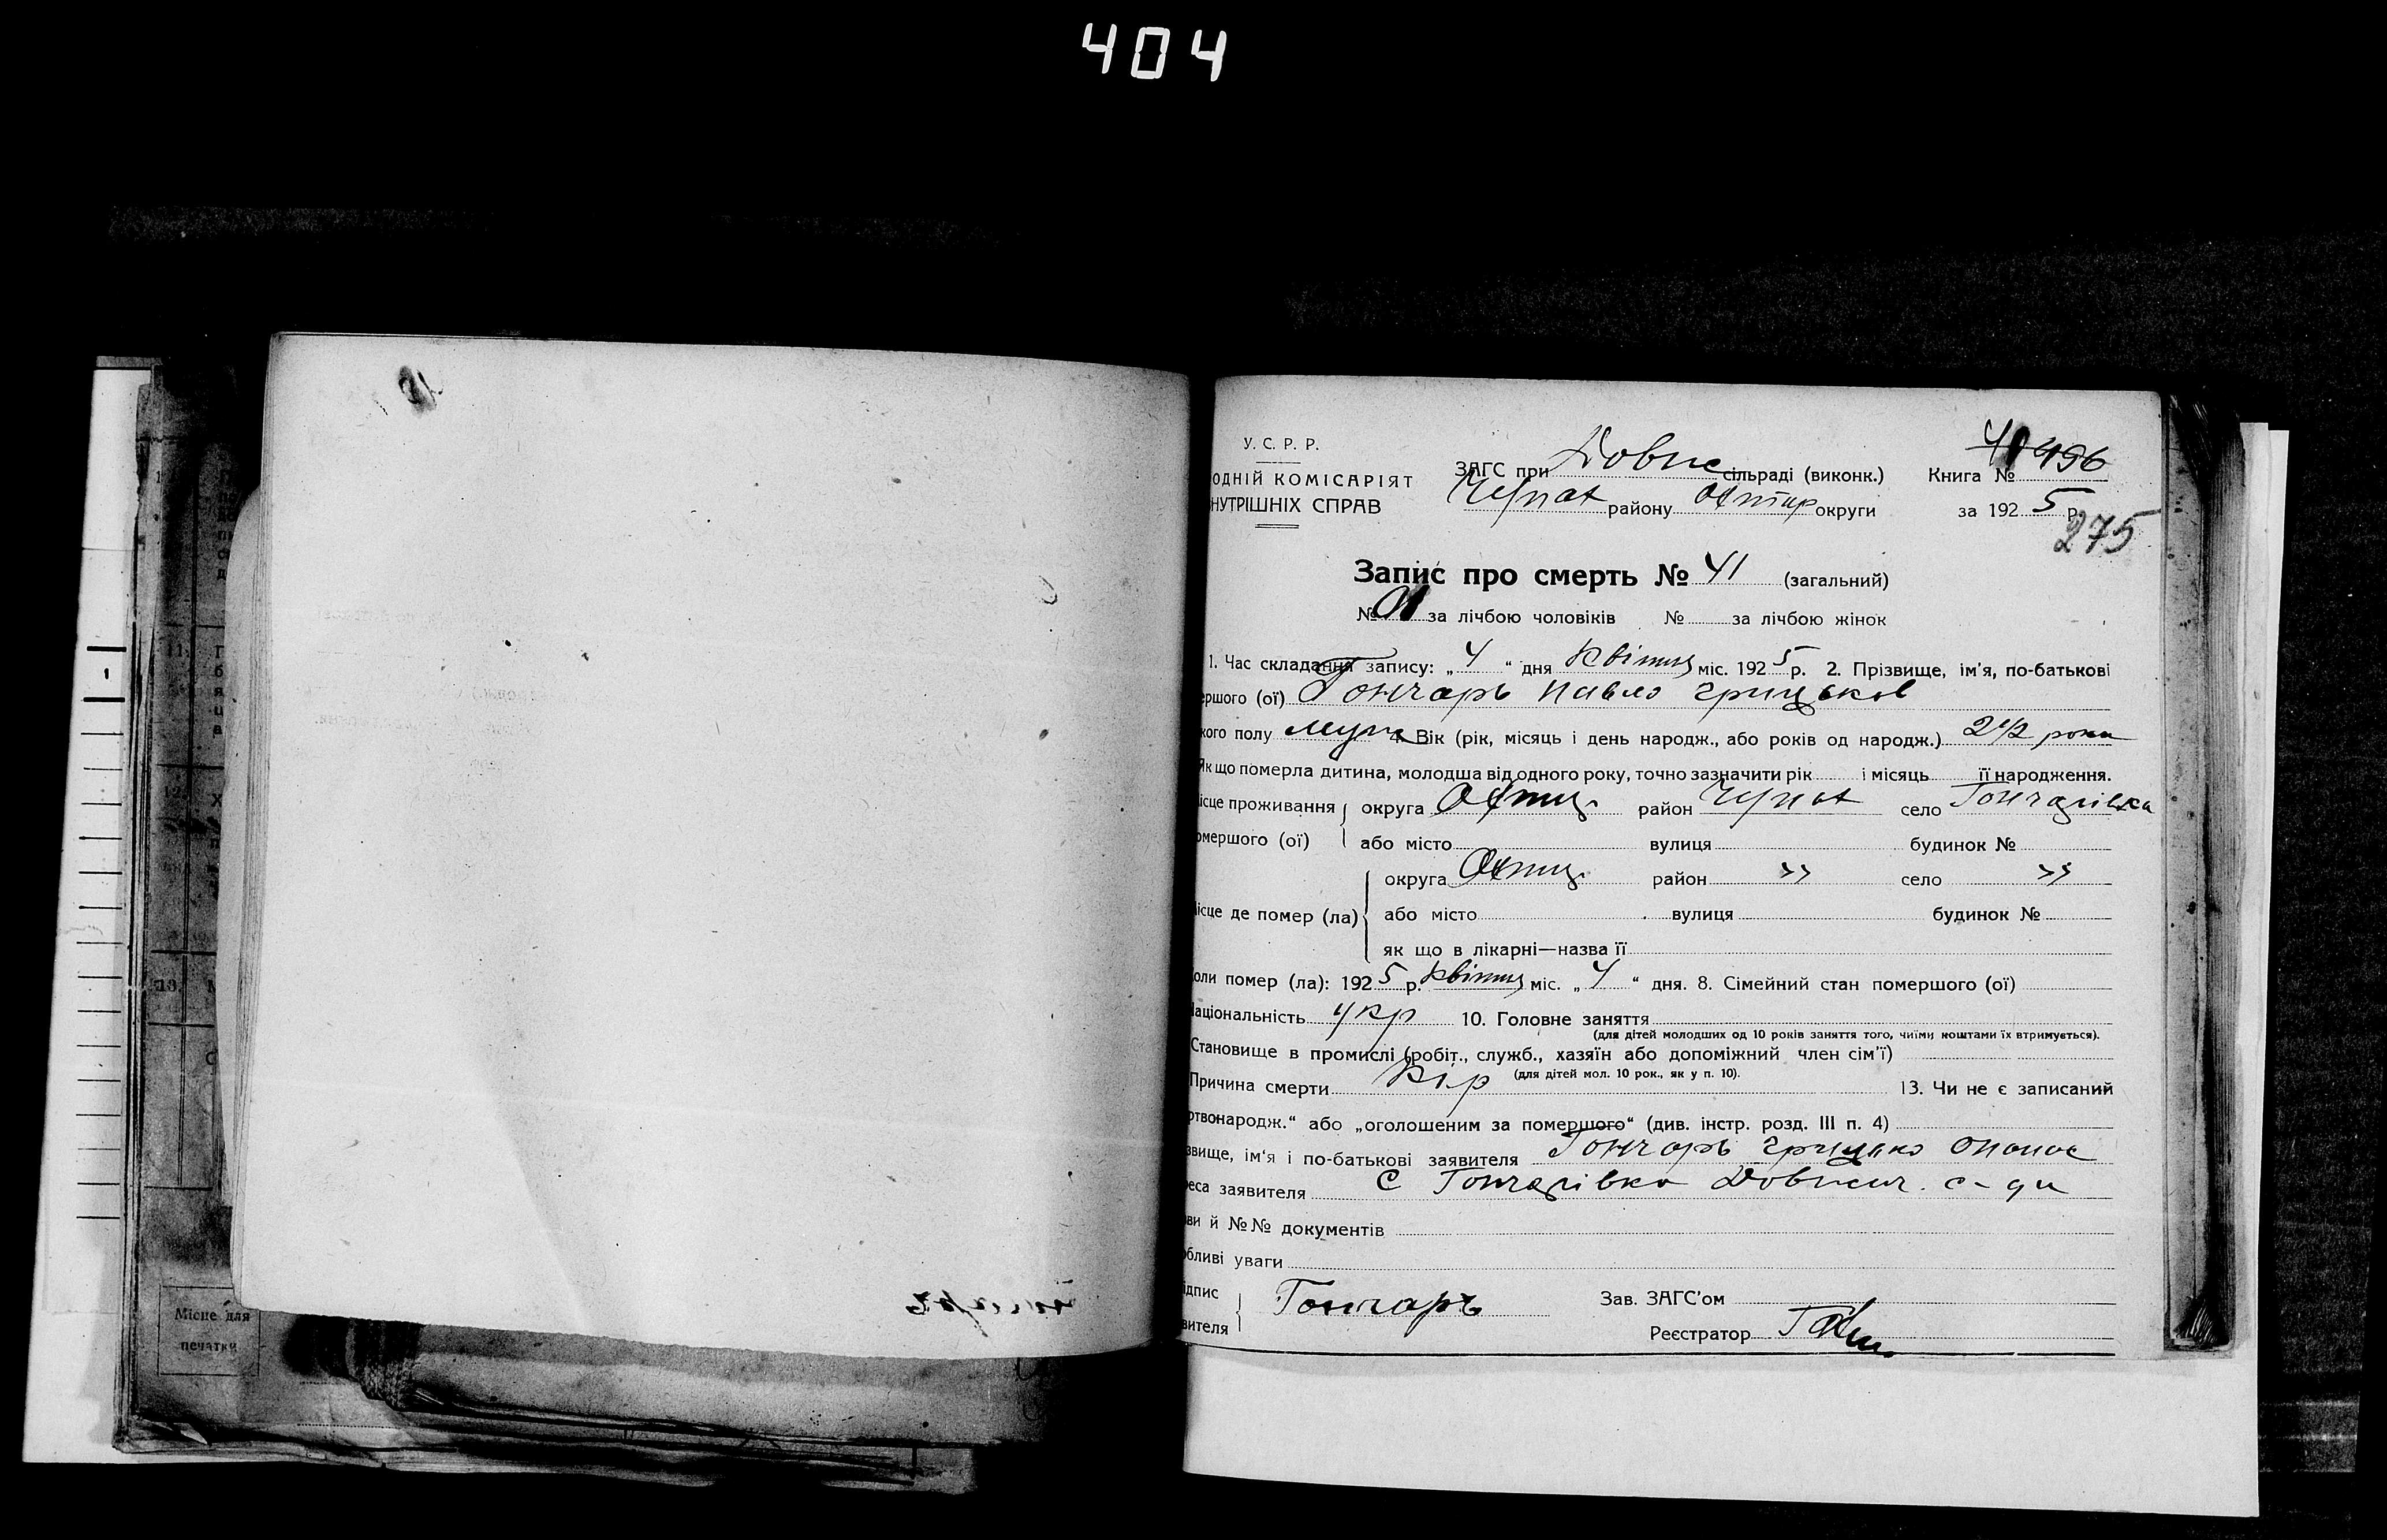 404
У. С. Р. Р.
ОДНІЙ КОМІСАРІЯТ
НУТРІШНІХ СПРАВ
ЗАГС при Довж сільраді (виконк.)
Чупах району Охтир округи
Книга № 496
за 1925 р.
275
Запис про смерть № 41 (загальний)
№ за лічбою чоловіків № за лічбою жінок
1. Час складання запису: „4“ дня Квітня міс. 1925 р. 2. Прізвище, ім'я, по-батькові
ершого (ої) Гончарь Павло Грицьков
кого полу муж 4. Вік (рік, місяць і день народж., або років од народж.) 2 1/2 роки
Як що померла дитина, молодша від одного року, точно зазначити рік і місяць її народження.
ісце проживання округа район Чупах село Гончарівка
омершого (ої) або місто вулиця будинок №
округа район " село "
ісце де помер (ла) або місто вулиця будинок №
як що в лікарні—назва її
оли помер (ла): 1925 р. Квітня міс. „4“ дня. 8. Сімейний стан помершого (ої)
аціональність укр 10. Головне заняття
(для дітей молодших од 10 років заняття того, чиїми коштами їх втримується).
Становище в промислі (робіт., служб., хазяїн або допоміжний член сім'ї)
(для дітей мол. 10 рок., як у п. 10).
Причина смерти Кір 13. Чи не є записаний
ртвонародж.“ або „оголошеним за помершого“ (див. інстр. розд. III п. 4)
звище, ім'я і по-батькові заявителя Гончарь Грицько Опанас
реса заявителя С Гончарівка
ви й №№ документів
обливі уваги
ідпис
вителя Гончарь
Зав. ЗАГС'ом
Реєстратор
Місце для
печатки